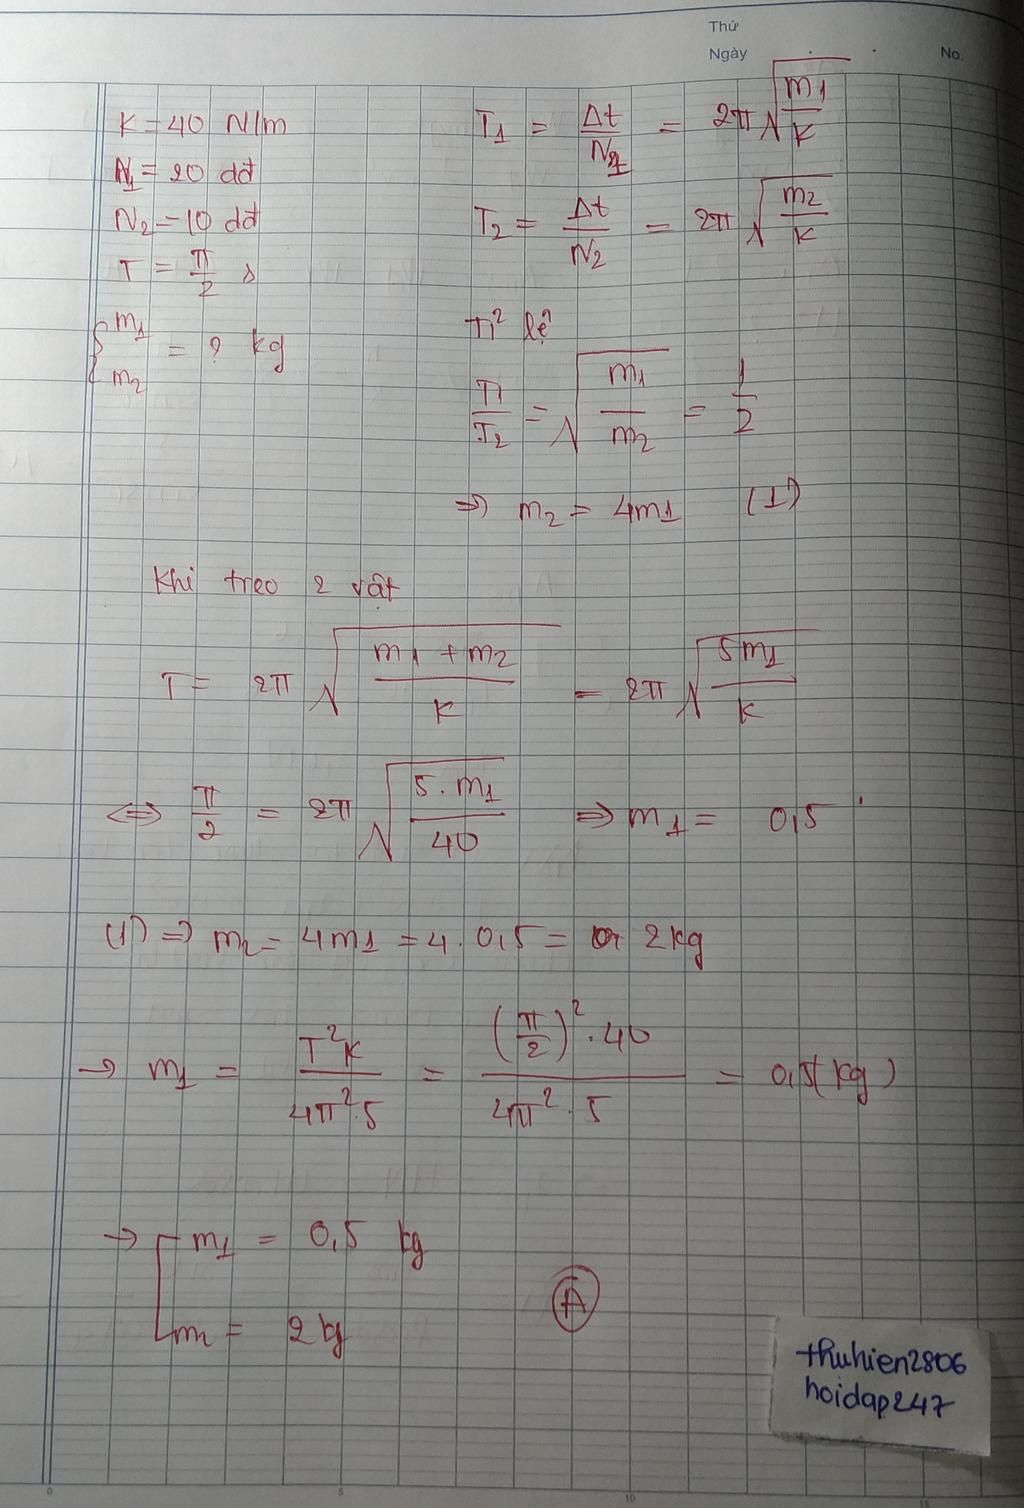 Thứ
Ngày
No.
K = 40 N/m
N1 = 20 dđ
N2 = 10 dđ
T = π/2 s
{ m1 m2 = ? kg
T1 = Δt/N1 = 2π√(m1/K)
T2 = Δt/N2 = 2π√(m2/K)
Tỉ lệ
T1/T2 = √(m1/m2) = 1/2
⇒ m2 = 4m1 (1)
Khi treo 2 vật
T = 2π√((m1 + m2)/K) = 2π√(5m1/K)
⇔ π/2 = 2π√(5.m1/40) ⇒ m1 = 0,5
(1) ⇒ m2 = 4m1 = 4.0,5 = 2kg
→ m1 = T²K/4π².5 = (π/2)².40/4π².5 = 0,5(kg)
→ [ m1 = 0,5 kg
m = 2kg
A
thuhien2806
hoidap247
0 5 10 15